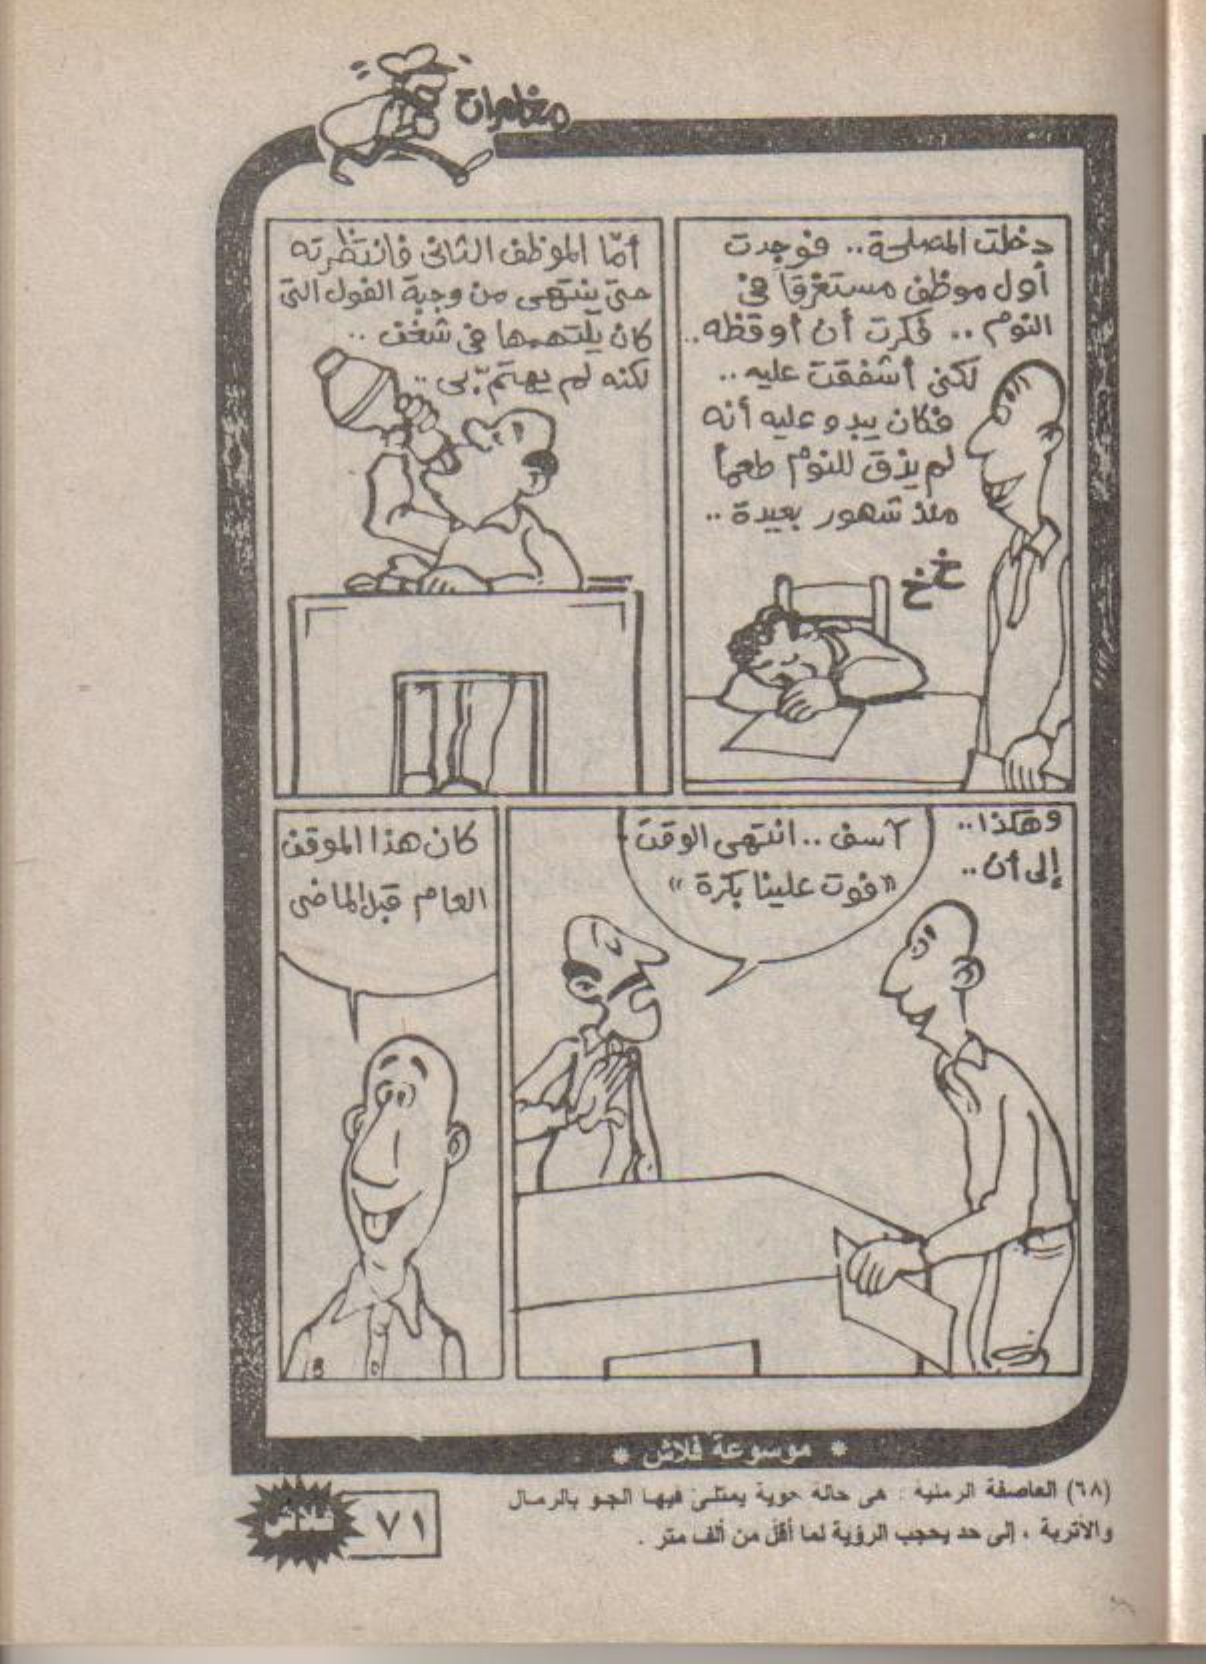 مغامرات
دخلت المصلحة.. فوجدت
أول موظف مستغرقاً في
النوم .. فكرت أن أوقظه..
لكني أشفقت عليه ..
فكان يبدو عليه أنه
لم يذق للنوم طعماً
منذ شهور بعيدة ..
خ خ
أمّا الموظف الثاني فانتظرته
حتى ينتهى من وجبة الفول التى
كان يلتهمها في شغف ..
لكنه لم يهتمّ بى ..
وهكذا..
إلى أن ..
آسف .. انتهى الوقت
«فوت علينا بكرة»
كان هذا الموقف
العام قبل الماضى
* موسوعة فلاش *
(٦٨) العاصفة الرملية : هى حالة جوية يمتلئ فيها الجو بالرمال
والأتربة ، إلى حد يحجب الرؤية لما أقل من ألف متر .
٧١
فلاش